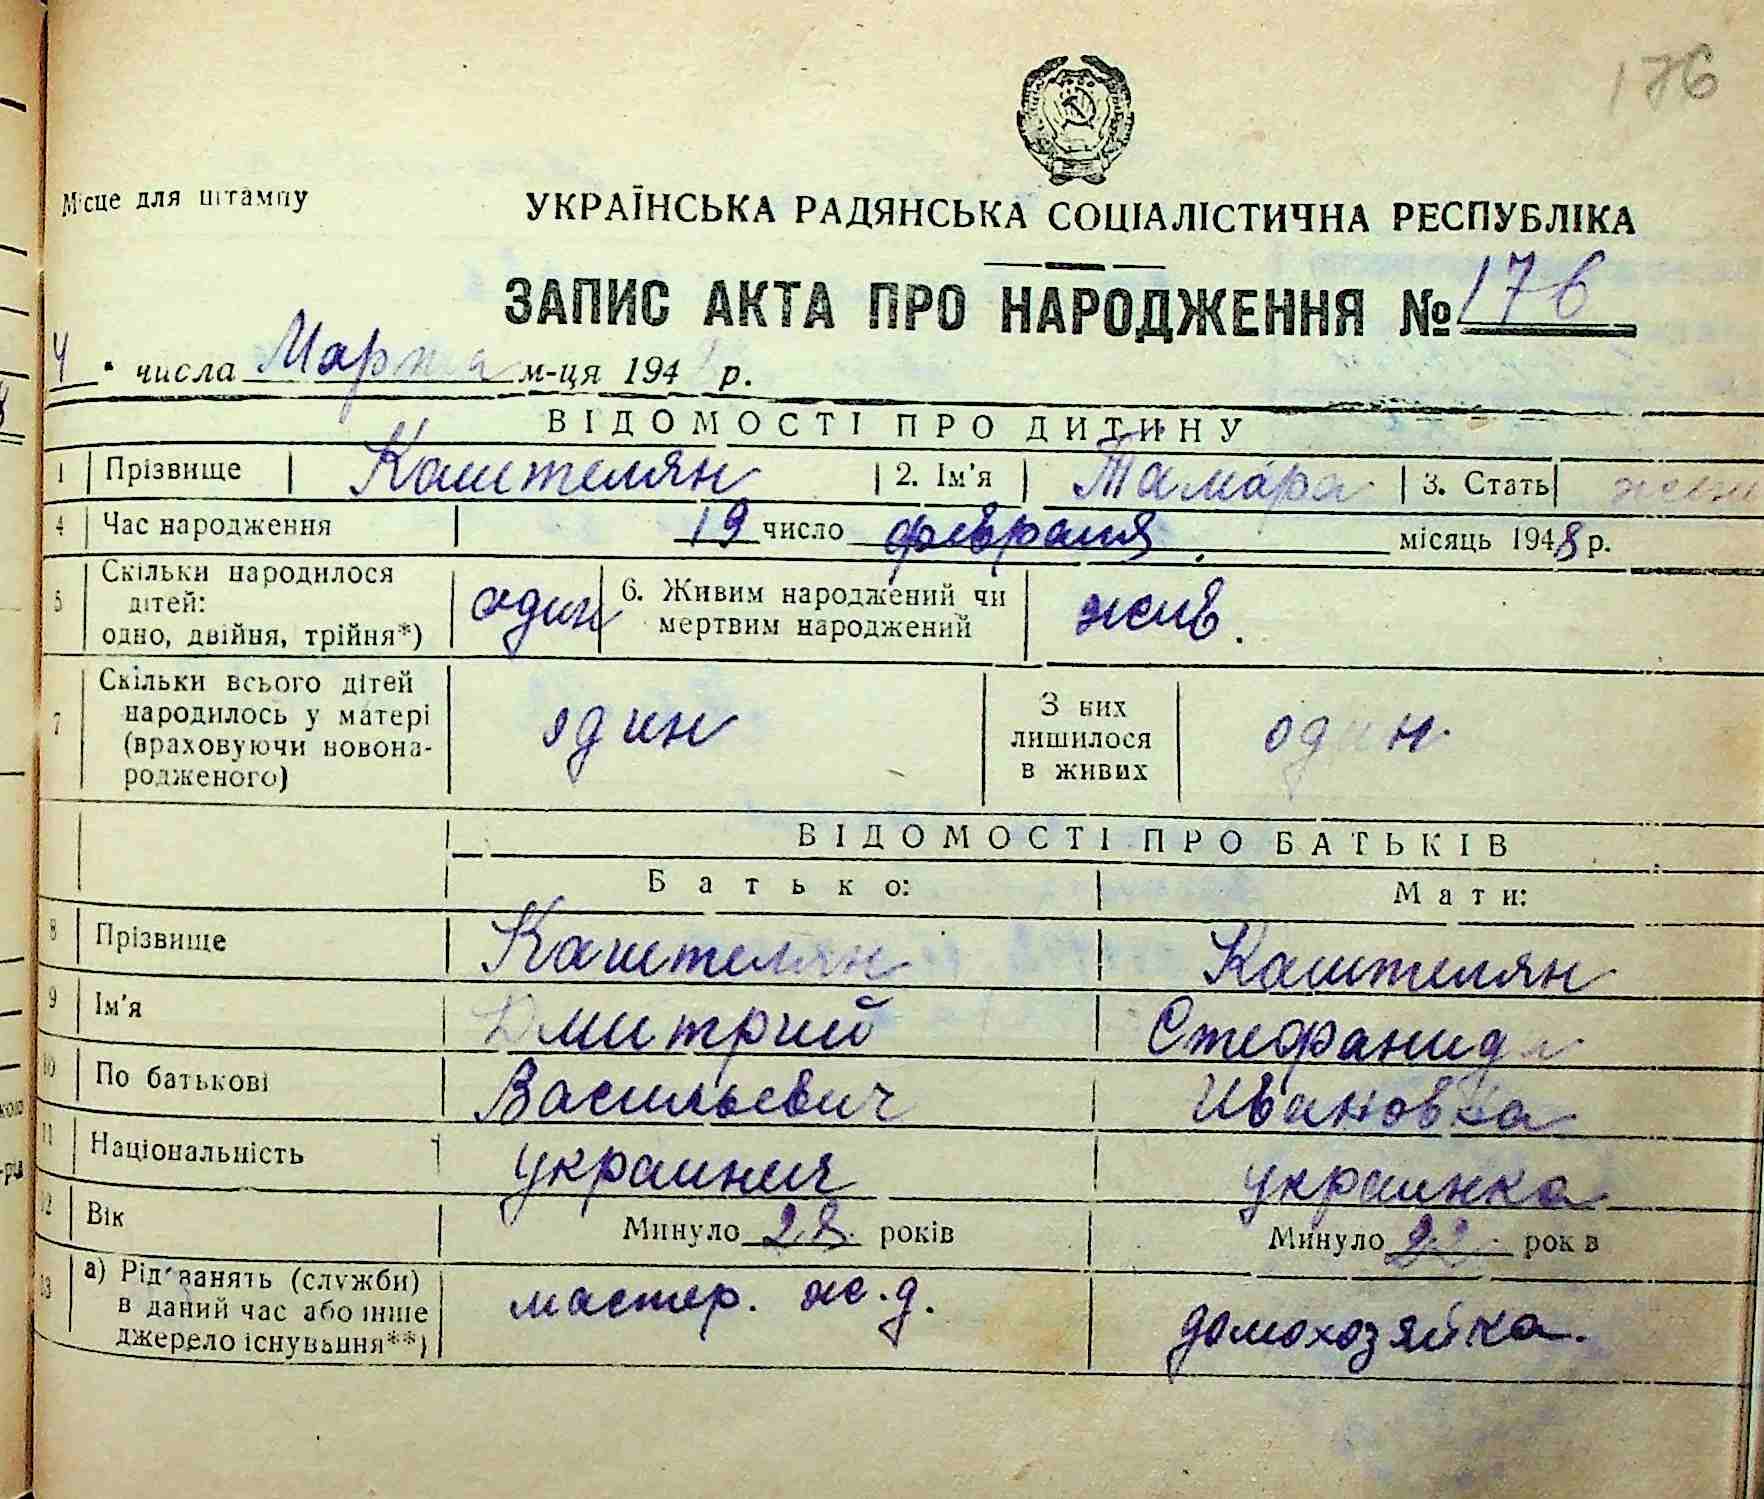 176
Місце для штампу
УКРАЇНСЬКА РАДЯНСЬКА СОЦІАЛІСТИЧНА РЕСПУБЛІКА
ЗАПИС АКТА ПРО НАРОДЖЕННЯ № 176
4 числа Марта м-ця 194 р.
ВІДОМОСТІ ПРО ДИТИНУ
1 Прізвище Каштелян 2. Ім'я Тамара 3. Стать жен
4 Час народження 19 число февраля місяць 1948 р.
5 Скільки народилося дітей: одно, двійня, трійня*) один 6. Живим народжений чи мертвим народжений жив.
7 Скільки всього дітей народилось у матері (враховуючи новонародженого) один З них лишилося в живих один.
ВІДОМОСТІ ПРО БАТЬКІВ
Батько: Мати:
8 Прізвище Каштелян Каштелян
9 Ім'я Дмитрий Стефанида
10 По батькові Васильевич Ивановна
11 Національність украинец украинка
12 Вік Минуло 28 років Минуло 22 років
13 а) Рід занять (служби) в даний час або інше джерело існування**) мастер. ж.д. домохозяйка.